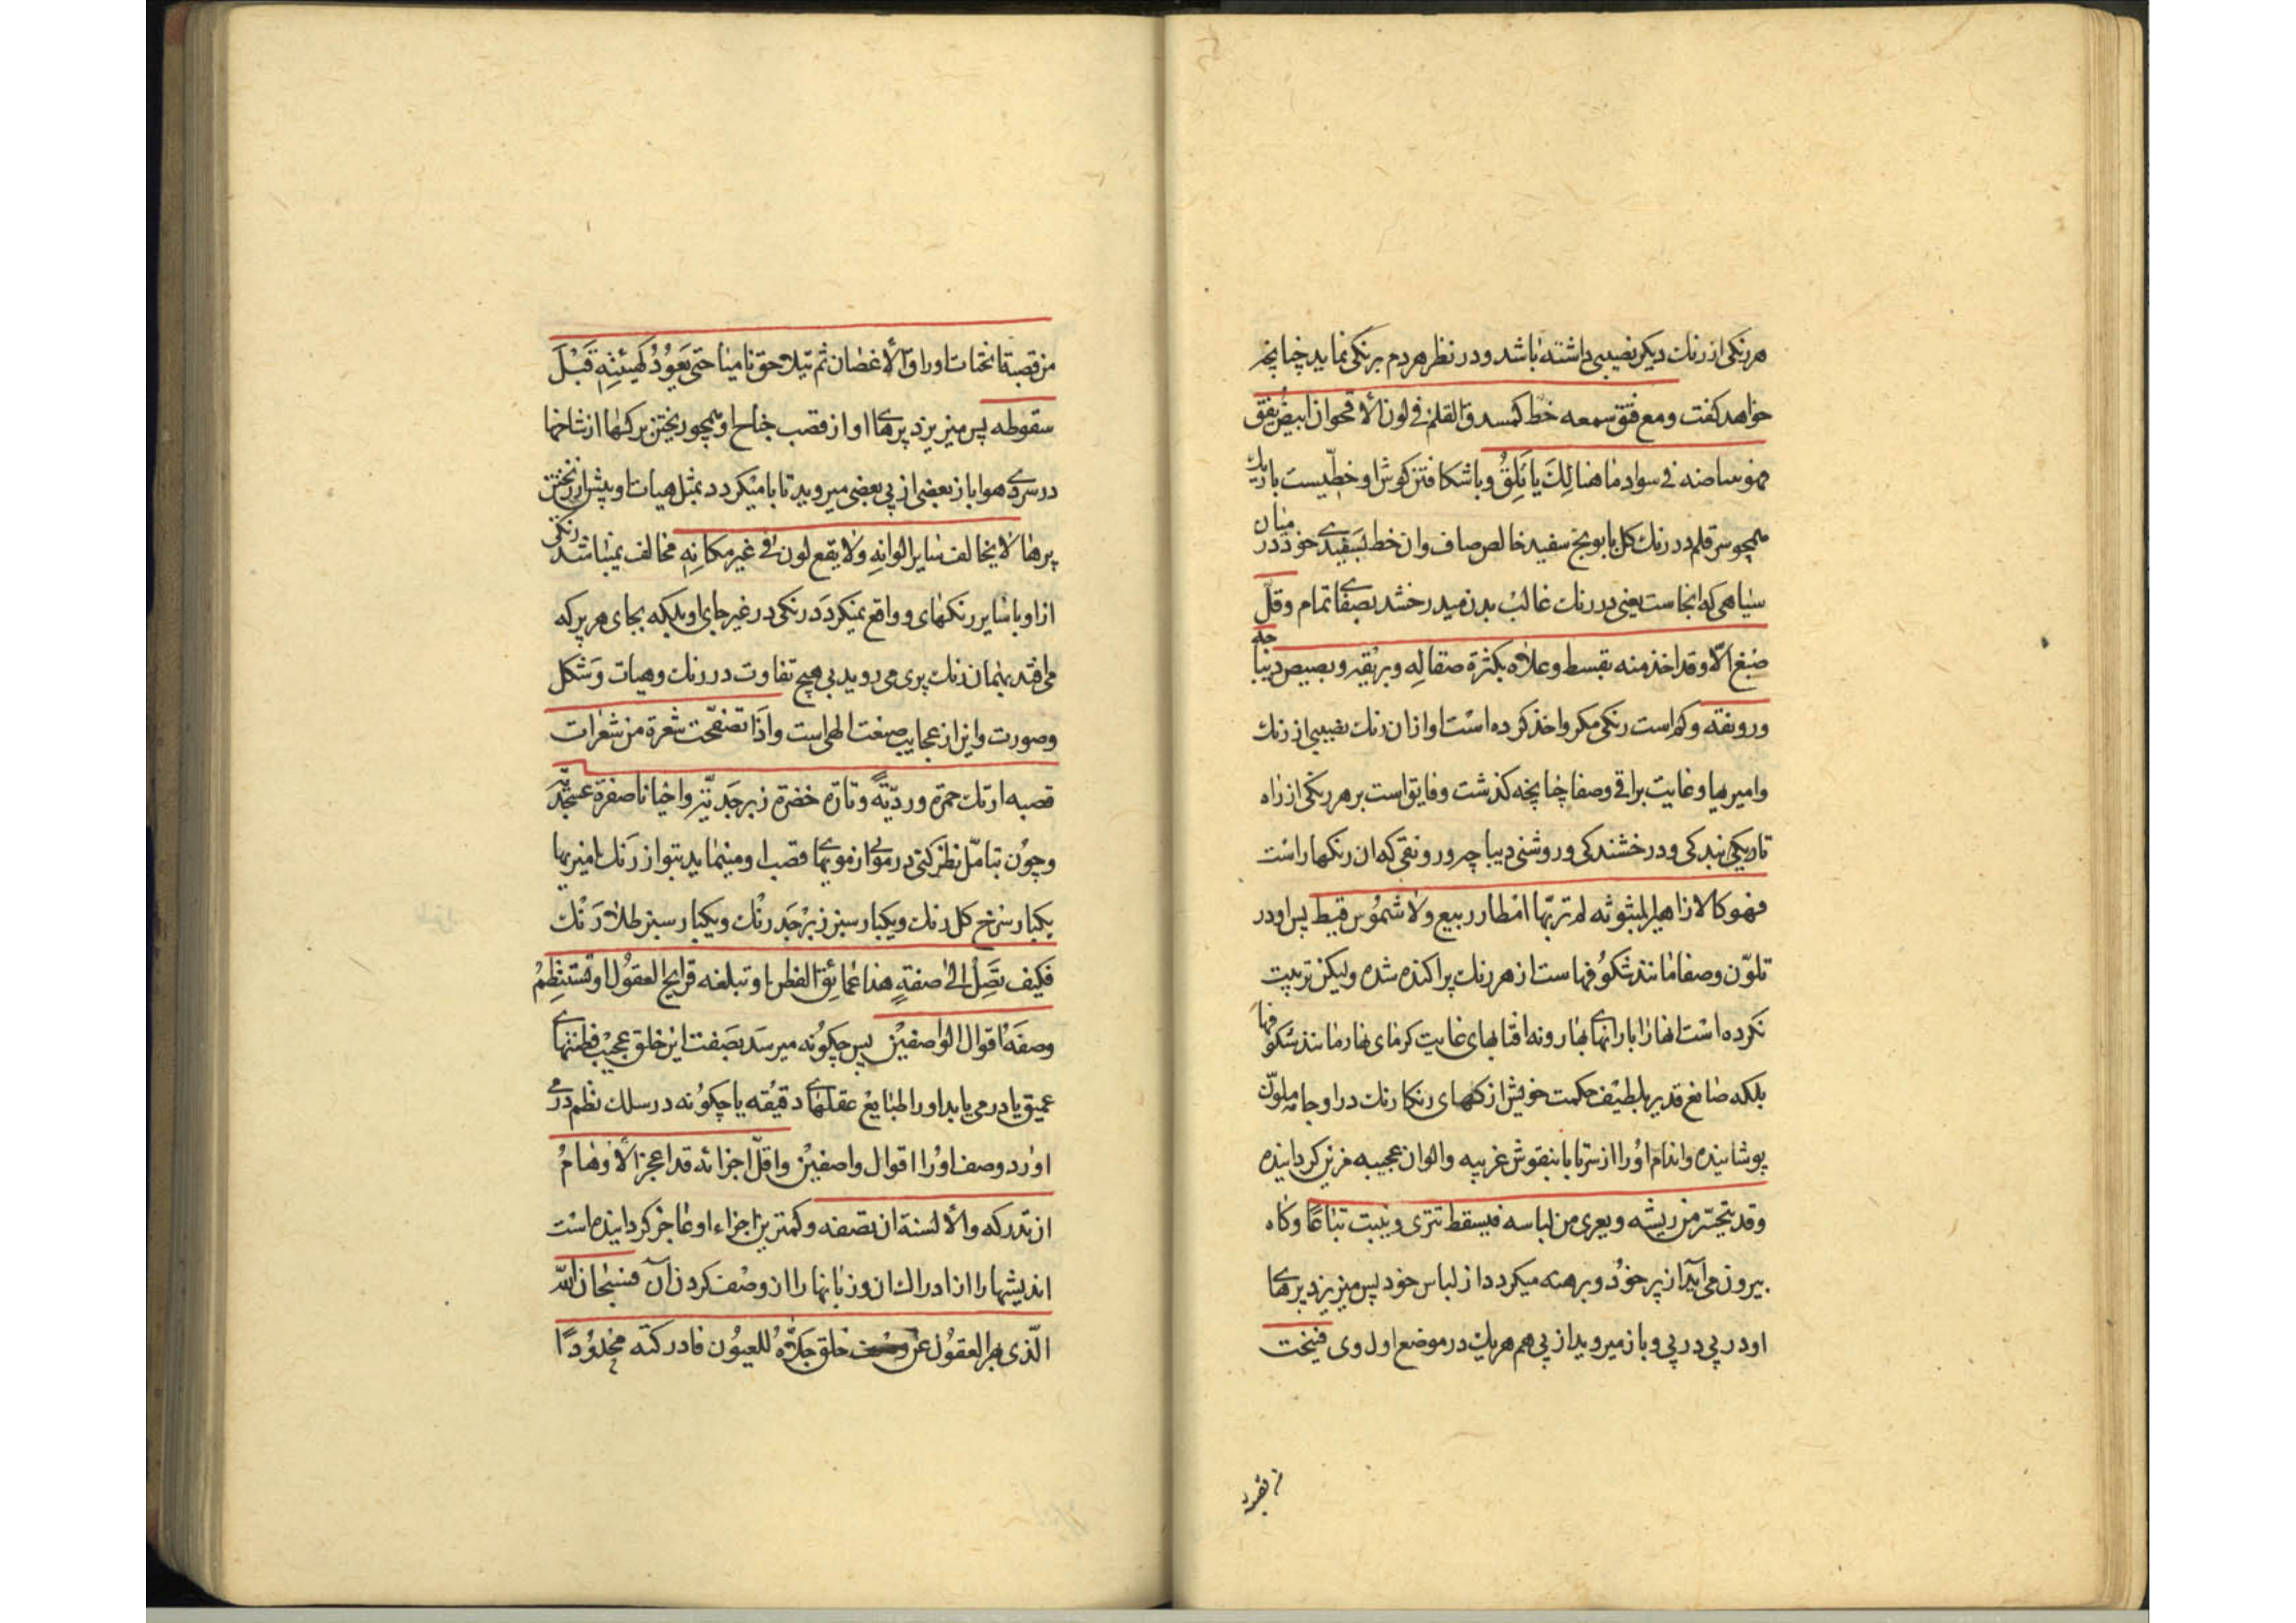 هر رنکی از رنك دیکر نصیبی داشته باشد و در نظر هر دم برنکی نماید چنانچه
خواهد کفت ومع فتق سمعه خط کمستدق القلم فی لون الاقحوان ابیض یقق
فهو ببیاضه فی سواد ما هنالِكَ یأتَلِقُ و با شکافتن کوش او خطّیست باریك
همچو سر قلم در رنك کل بابونج سفید خالص صاف و ان خط بسَفیدی خود در میان
سیاهی که انجاست یعنی در رنك غالب بدن میدرخشد بصفای تمام وقلّ
صَبغ الّا وقد اخذ منه بقسط وعلاه بکثرة صقالِه وبریقه وبصیص دیباجه
ورونقه وکم است رنکی مکر واخذ کرده است او از ان رنك نصیبی از رنك
وامیزیها وغایت براقی وصفا چنانچه کذشت وفایق است بر هر رنکی از راه
تاریکی بندکی ودرخشندکی وروشنی دیباچه ورونقی که ان رنکها راست
فهو کالازاهیر المبثوثه لم تربّها امطار ربیع ولا شموُس قیظ پس او در
تلوّن وصفا مانند شکوُفهاست از هر رنك پراکنده شده ولیکن تربیت
نکرده است انها را بارانهای بهار و نه افتابهای غایت کرمای بهار مانند شکوُفها
بلکه صانع قدیر بلطیف حکمت خویش از کلهای رنکارنك در او جامه ملوّن
پوشانیده واندام اوُ را از سر تا پا بنقوش غریبه والوان عجیبه مزین کردانیده
وقد یتحسّر من ریشه ویعری من لباسه فیسقط تتری وینبت تباعًا وکاه
بیرون می آید از پر خوُد و برهنه میکردد از لباس خود پس میریزد پرهای
او در پی در پی و باز میروید از پی هم هریك در موضع اول وی فینحت
من قصبه
من قصبة انحتات اوراق الأغصان ثم یتلاحق نامیا حتّی یَعوُدُ کَهیئتِهِ قَبْلَ
سقوطه پس میریزد پرهای او از قصب جناح او همچو ریختن برکها از شاخها
در سردی هوا باز بعضی از پی بعضی میروید تا بامیکردد بمثل هیات او پیش از ریختن
پرها لا یخالف سایر الوانِهِ ولا یقع لون فی غیر مکانِهِ مخالف نمیباشد رنکی
از او با سایر رنکهای او و واقع نمیکردَد رنکی در غیر جای او بلکه بجای هر پر که
می افتد بهمان رنك پری می روید بی هیچ تفاوت در رنك وهیات وَشکل
وصورت واین از عجایب صنعت الهی است واذا تصفّحت شعرة من شعرات
قصبه ارتك حمرة وردیّةً وتارة خضرة زبرجَدیّة واحیانا صفرة عسجَدیّة
وچوُن بتامّل نظر کنی در موی از مویهای قصب او مینماید بتو از رَنك امیزیها
یکبار سُرخ کل رنك ویکبار سبز زبرْجَد رنْك ویکبار سبز طلا رَنْك
فکیف تَصِلُ الی صفةِ هذا عمائق الفطن او تبلغه قرایح العقوُل او تستنظِمُ
وصفَهُ اقوال الوٰاصفیْن پس چکوُنه میرسَد بصَفت این خلق عجیْب فطنتهای
عمیق یا در می یابد او را طبٰایع عقلهای دقیُقه یا چکوُنه در سلك نظم در می
اورَد وصف اوُ را اقوال واصفیْن واقلّ اجزائه قد اعجز الأوهامُ
ان تدرکه والألسنة ان تصفه وکمترین اجزاء او عاجز کردانیده است
اندیشها را از ادراك ان وزبانها را از وصْف کردن آن فسبحان اللّه
الّذی بهر العقوُل عن خلق جَلّاهُ للعیوُن فادرکته محْدوُدًا